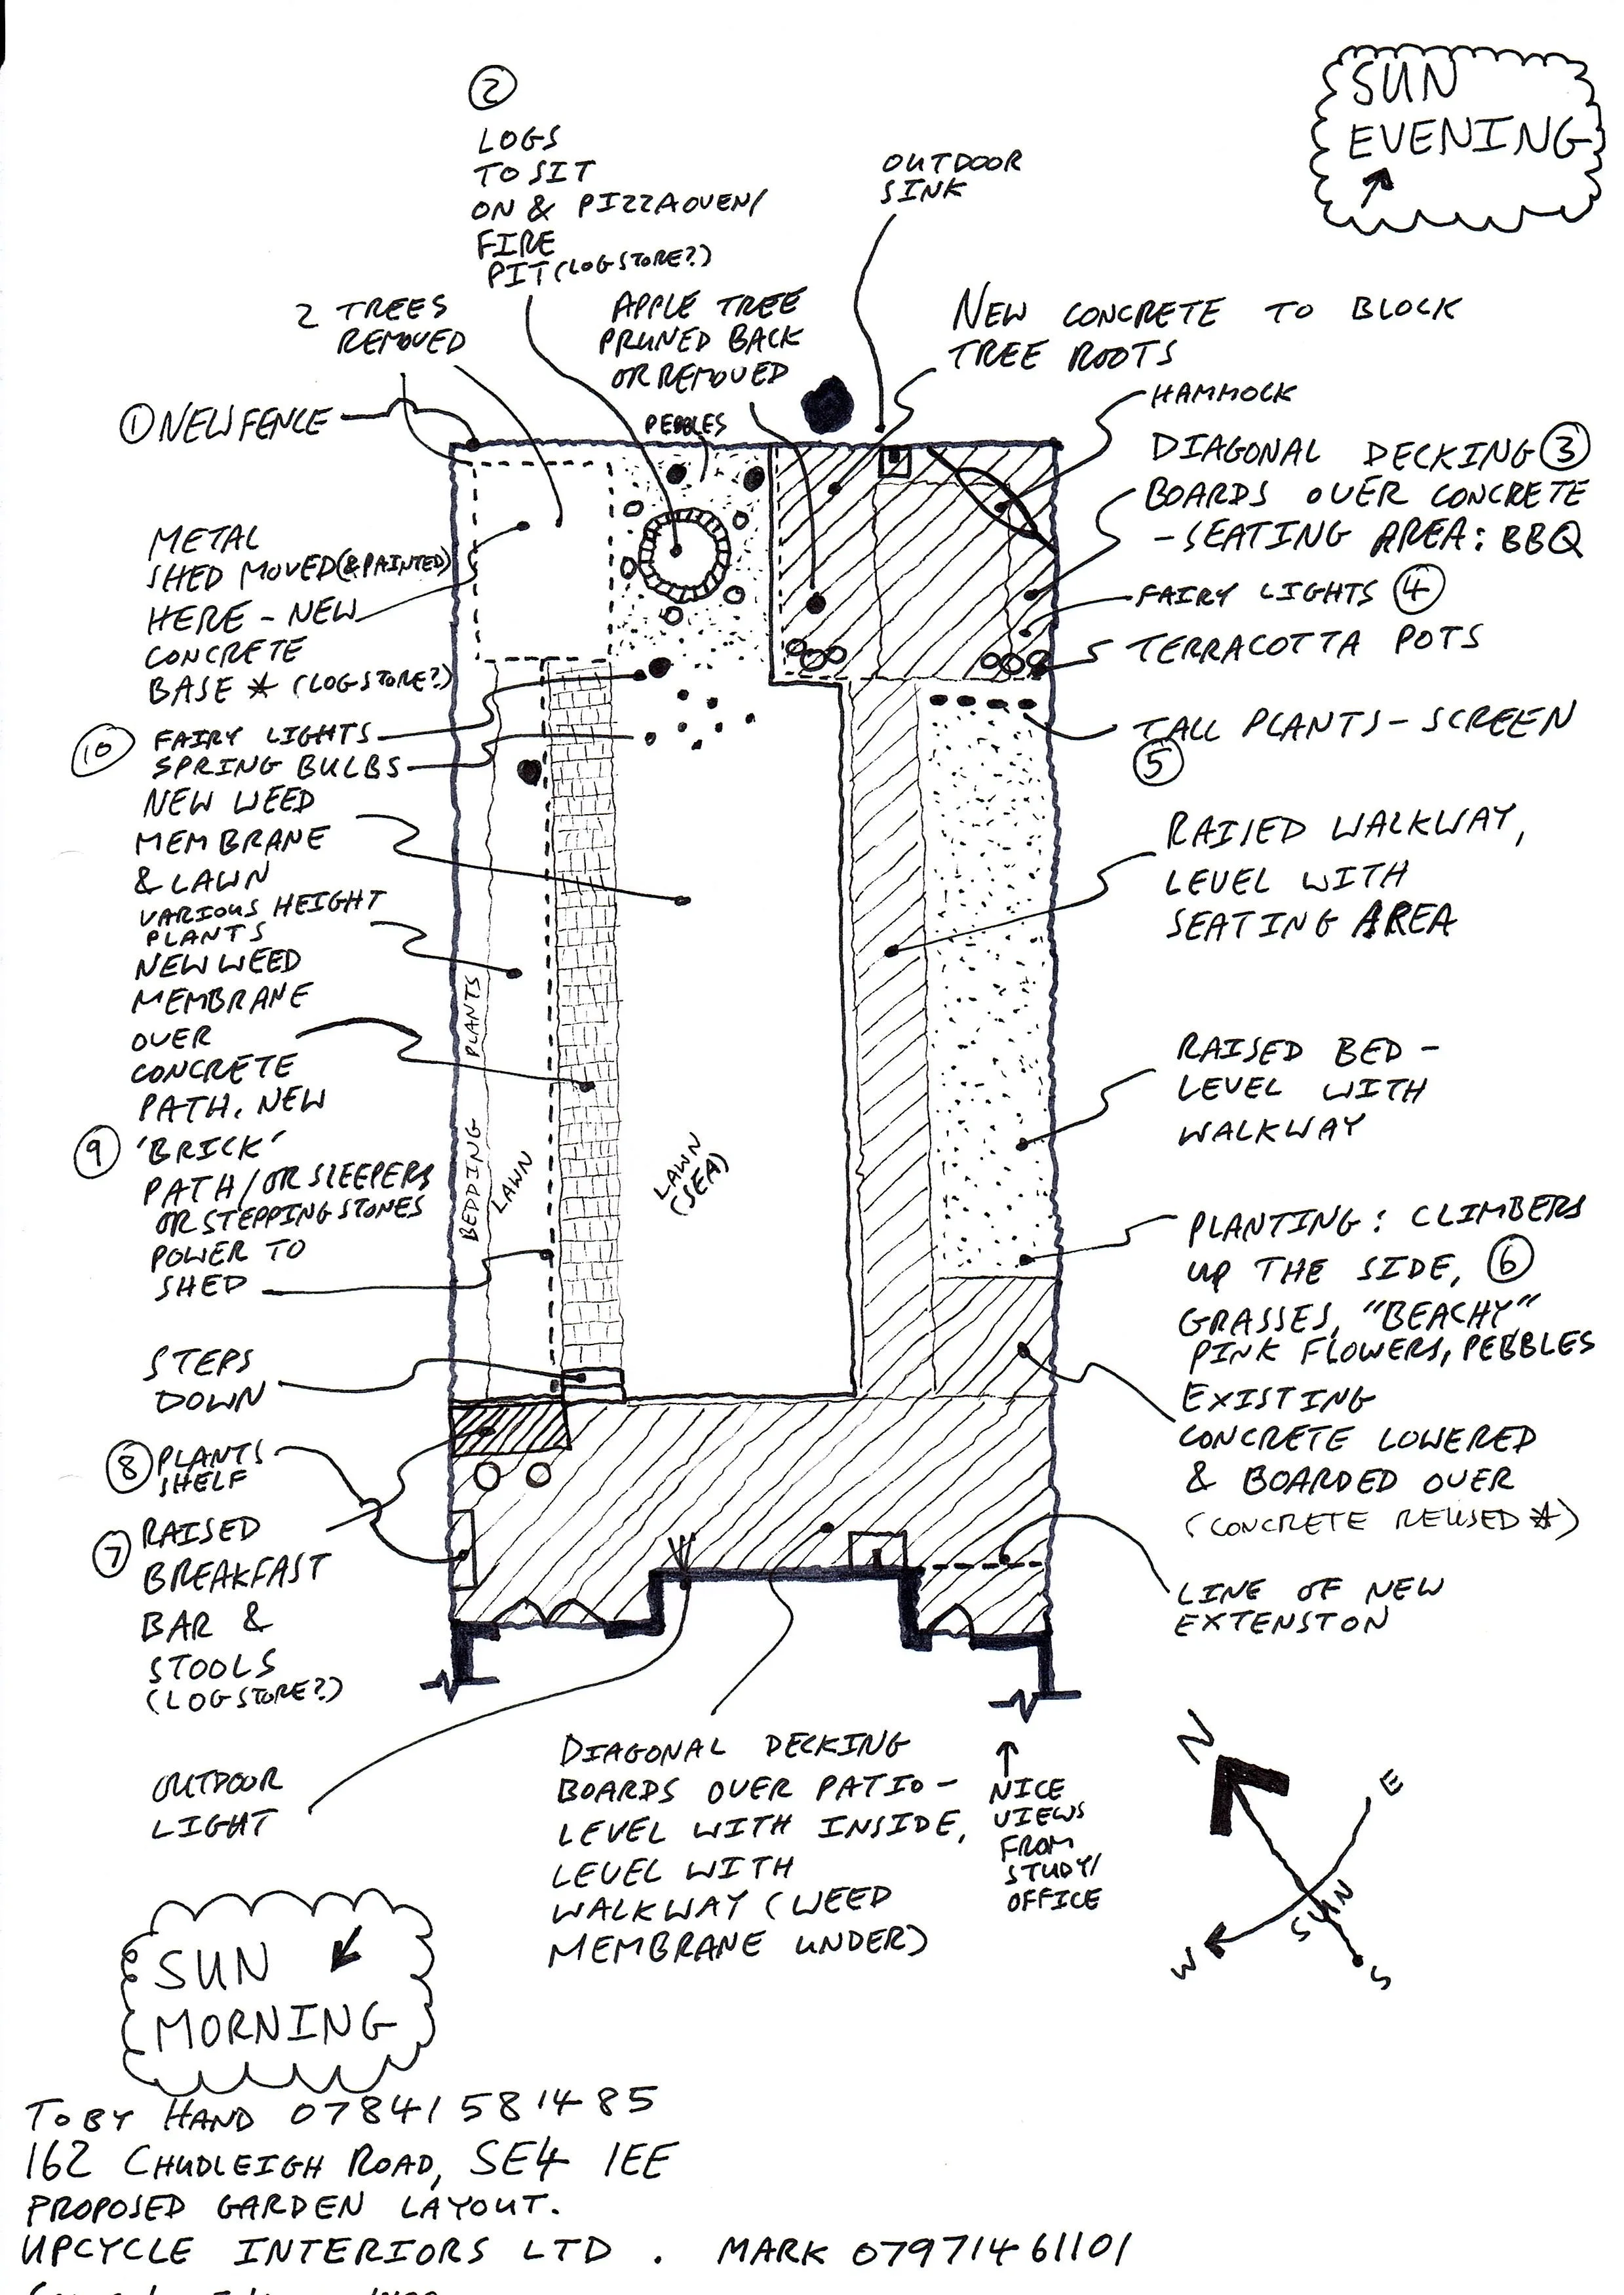 SUN
EVENING
2
LOGS
TO SIT
ON & PIZZA OVEN/
FIRE
PIT (LOGSTORE?)
OUTDOOR
SINK
2 TREES
REMOVED
APPLE TREE
PRUNED BACK
OR REMOVED
NEW CONCRETE TO BLOCK
TREE ROOTS
HAMMOCK
1 NEW FENCE
PEBBLES
DIAGONAL DECKING 3
BOARDS OVER CONCRETE
- SEATING AREA: BBQ
METAL
SHED MOVED (& PAINTED)
HERE - NEW
CONCRETE
BASE * (LOGSTORE?)
FAIRY LIGHTS 4
TERRACOTTA POTS
TALL PLANTS - SCREEN
5
10 FAIRY LIGHTS
SPRING BULBS
NEW WEED
MEMBRANE
& LAWN
VARIOUS HEIGHT
PLANTS
NEW WEED
MEMBRANE
OVER
CONCRETE
PATH. NEW
9 'BRICK'
PATH/OR SLEEPERS
OR STEPPING STONES
POWER TO
SHED
BEDDING PLANTS
LAWN
LAWN
(SEA)
RAISED WALKWAY,
LEVEL WITH
SEATING AREA
RAISED BED -
LEVEL WITH
WALKWAY
PLANTING: CLIMBERS
UP THE SIDE, 6
GRASSES, "BEACHY"
PINK FLOWERS, PEBBLES
STEPS
DOWN
EXISTING
CONCRETE LOWERED
& BOARDED OVER
(CONCRETE REUSED *)
8 PLANTS
SHELF
7 RAISED
BREAKFAST
BAR &
STOOLS
(LOGSTORE?)
LINE OF NEW
EXTENSTON
OUTDOOR
LIGHT
DIAGONAL DECKING
BOARDS OVER PATIO -
LEVEL WITH INSIDE,
LEVEL WITH
WALKWAY (WEED
MEMBRANE UNDER)
NICE
VIEWS
FROM
STUDY/
OFFICE
N
E
SUN
W
S
SUN
MORNING
TOBY HAND 07841 581485
162 CHUDLEIGH ROAD, SE4 1EE
PROPOSED GARDEN LAYOUT.
UPCYCLE INTERIORS LTD. MARK 07971461101